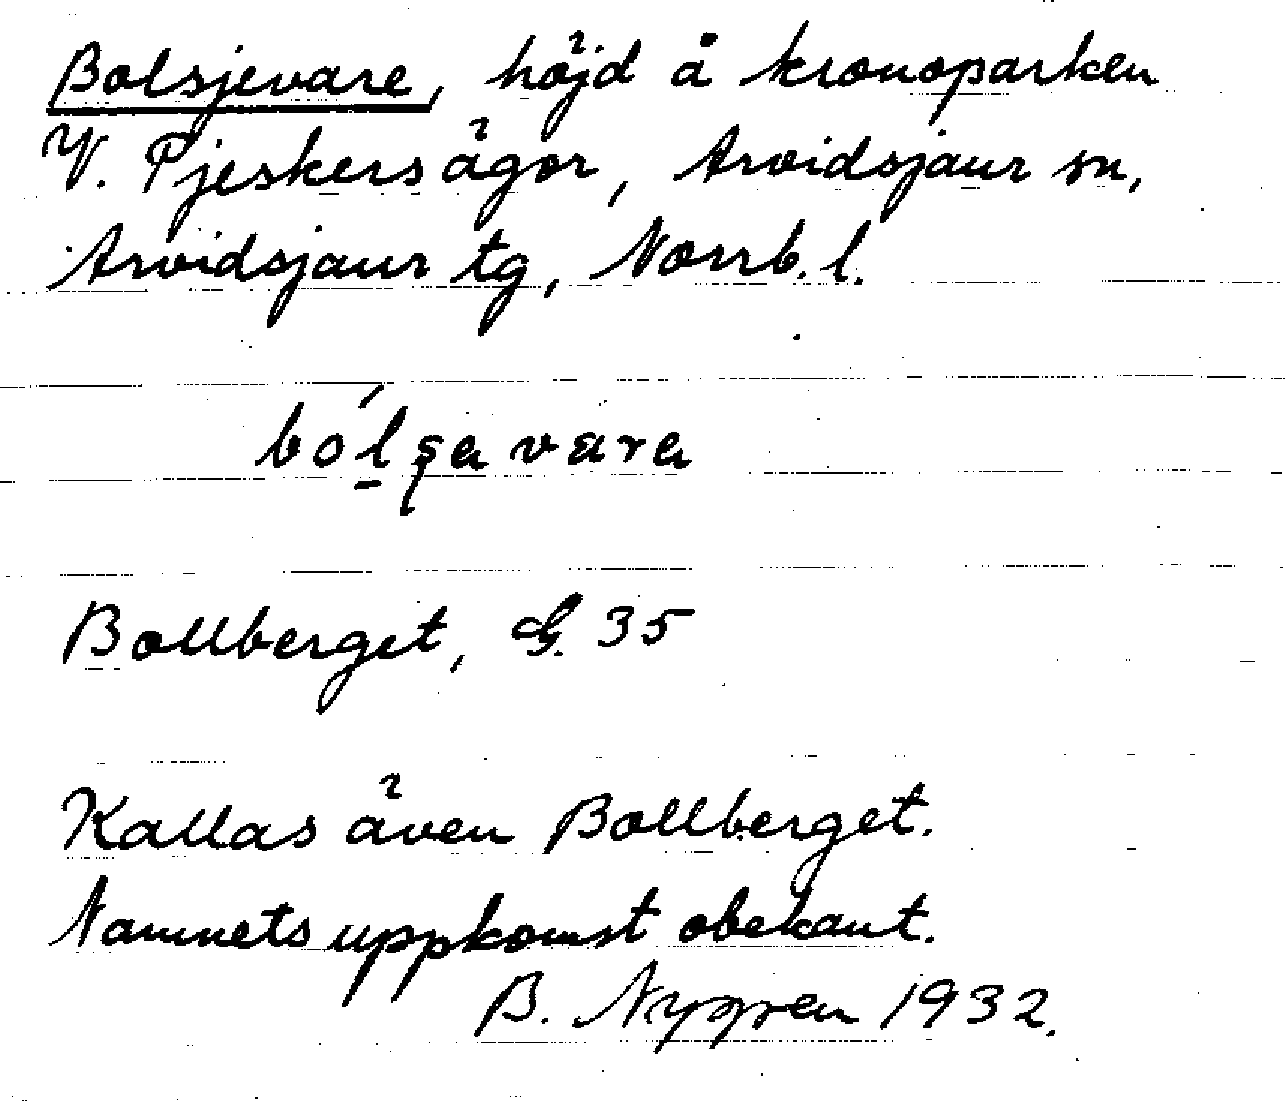 Bolsjevare, höjd å kronoparken
V. Pjeskersägor, Arvidsjaur sn,
Arvidsjaur tg, Norrb. l.
bó̱lşa vara
Bollberget, G. 35
Kallas även Bollberget.
Namnets uppkomst obekant.
B. Nygren 1932.